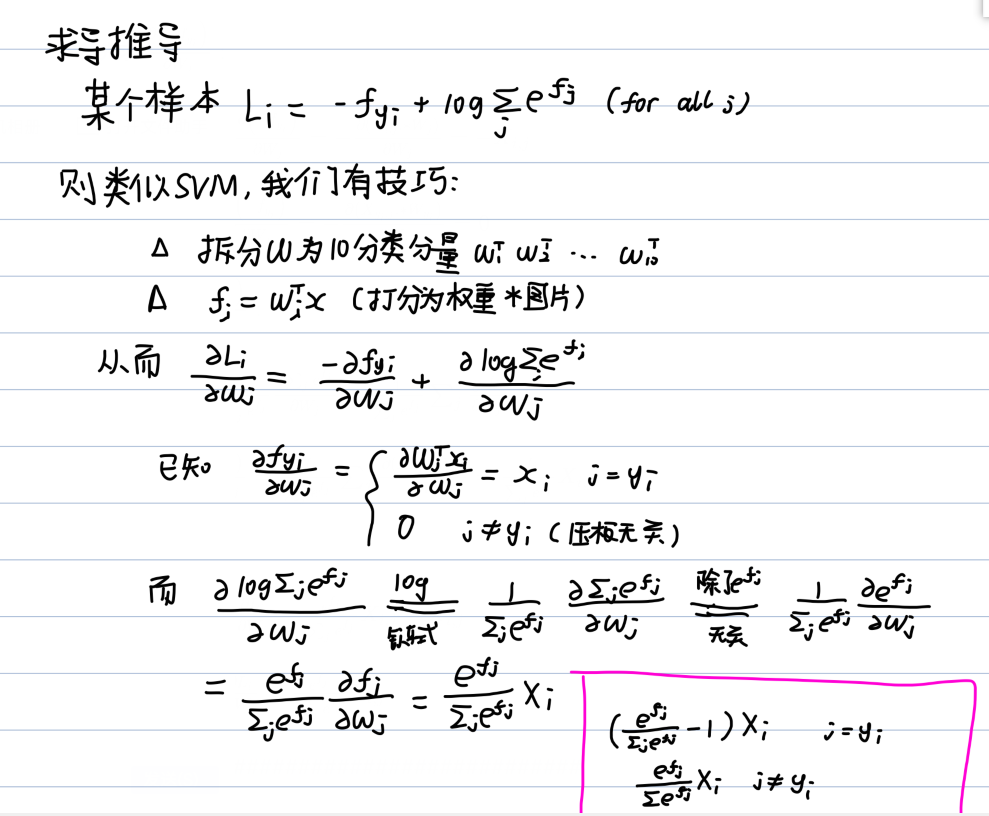 求导推导
某个样本 Lᵢ = -f_{yᵢ} + log Σ_j e^{f_j} (for all j)
则类似SVM, 我们有技巧:
Δ 拆分W为10分类分量 w₁ᵀ w₂ᵀ … w₁₀ᵀ
Δ f_j = w_jᵀx (打分为权重*图片)
从而 ∂Lᵢ/∂w_j = -∂f_{yᵢ}/∂w_j + ∂log Σ_j e^{f_j}/∂w_j
已知 ∂f_{yᵢ}/∂w_j = { ∂w_jᵀxᵢ/∂w_j = xᵢ j=yᵢ
0 j≠yᵢ (压根无关)
而 ∂log Σ_j e^{f_j}/∂w_j =(log 链式)= 1/Σ_j e^{f_j} ∂Σ_j e^{f_j}/∂w_j =(除了e^{f_j} 无关)= 1/Σ_j e^{f_j} ∂e^{f_j}/∂w_j
= e^{f_j}/Σ_j e^{f_j} ∂f_j/∂w_j = e^{f_j}/Σ_j e^{f_j} Xᵢ
(e^{f_j}/Σ_j e^{f_j} -1) Xᵢ j=yᵢ
e^{f_j}/Σe^{f_j} Xᵢ j≠yᵢ